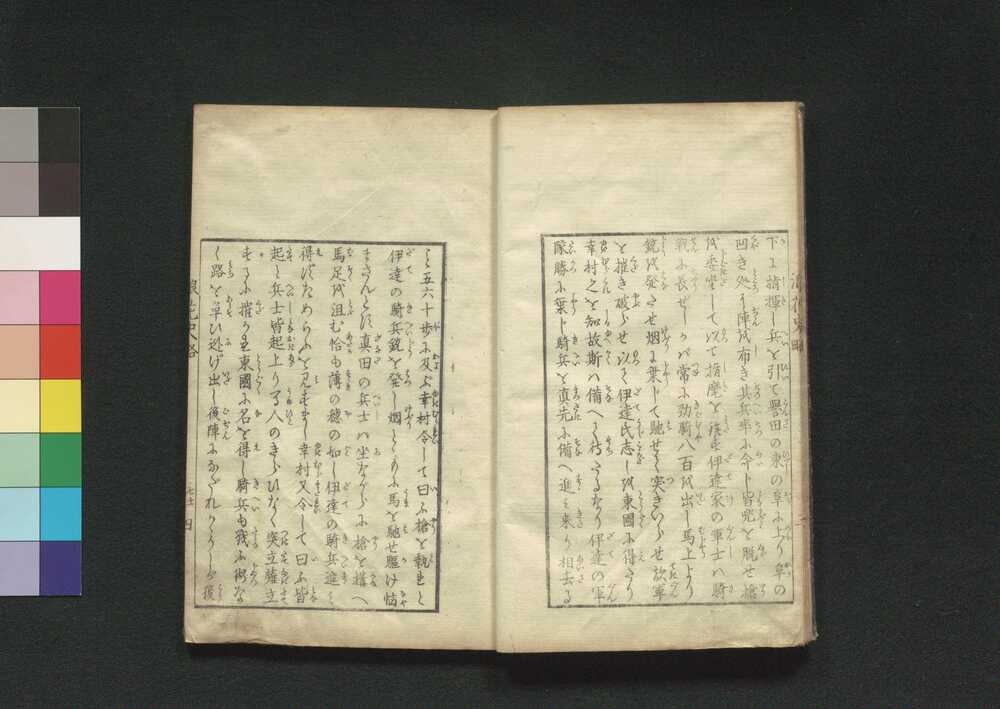 下に指揮し兵を引て誉田の東の阜に上り阜の
凹き処に陣を布き其兵卒に令し皆兜を脱せ槍
を委坐して以て指麾を俟も伊達家の軍士ハ騎
戦に長ぜしかバ常に勁騎八百を出し馬上より
銃を発さセ烟に乗じて馳せて突きいらせ敵軍
を摧き破らせ以て伊達氏志しを東國に得たり
幸村之を知故斯ハ備へて待たるなり伊達の軍
隊勝に乗じ騎兵を真先に備へ進ミ来り相去る
こと五六十歩に及ぶ幸村令して曰ふ槍を執れと
伊達の騎兵銃を発し烟とともに馬を馳せ驅け
まさんとに真田の兵士ハ坐ながらに槍を構へ
馬足を沮む恰も薄の穂の如し伊達の騎兵進ミ
得ずためらふを見すまし幸村又令して曰ふ皆
起と兵士皆起上り人のきらひなく突立薙立
するに摧かれ東國に名を得し騎兵も我に
く路を奪ひ逃げ出し後陣になだれかゝりしが後